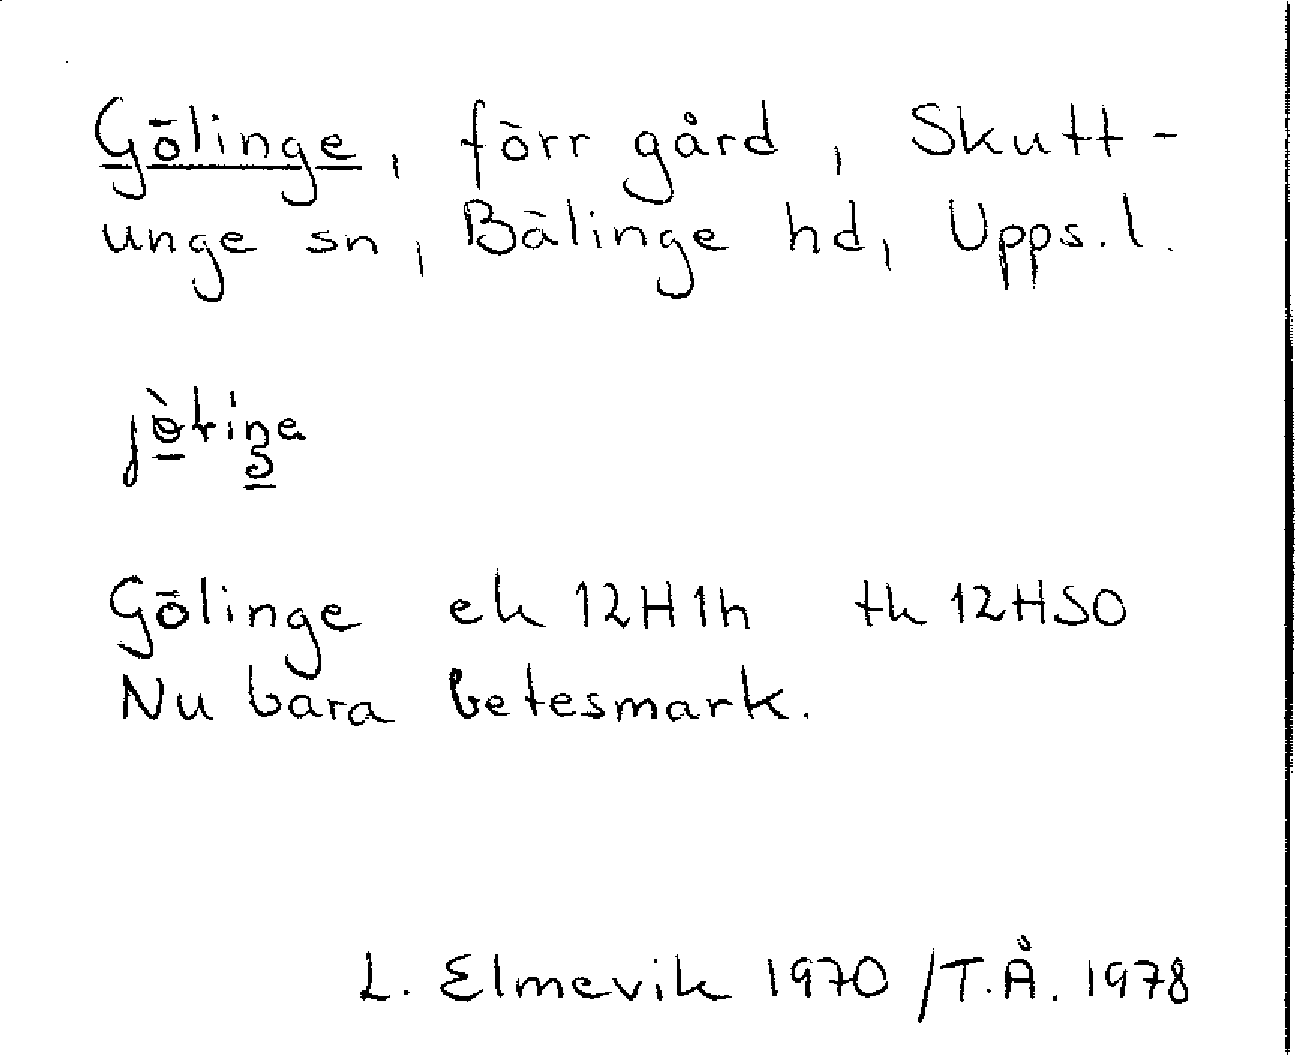 Gölinge, förr gård, Skutt-
unge sn, Bälinge hd, Upps. l.
Gölinge ek 12H1h tk 12HSO
Nu bara betesmark.
L. Elmevik 1970 /T.Å. 1978